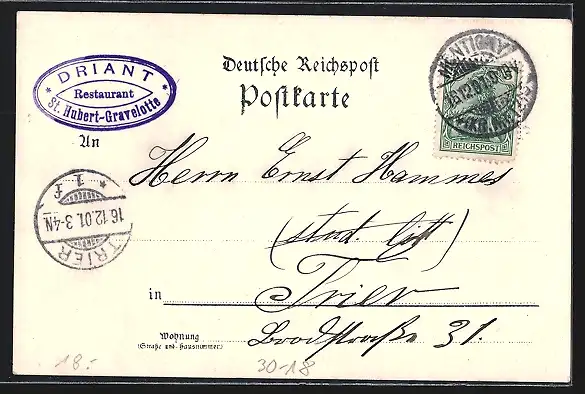 DRIANT
Restaurant
St. Hubert-Gravelotte
Deutsche Reichspost
Postkarte
REICHSPOST
An
Herrn Ernst Hammes
(stud. litt)
TRIER
16.12.01.3-4N
* 1 f
in Trier
Wohnung
(Straße und Hausnummer)
Brodstraße 31.
18.-
30-18